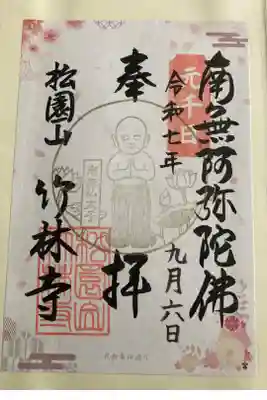 南無阿弥陀佛
令和七年
九月六日
奉拝
松園山
竹林寺